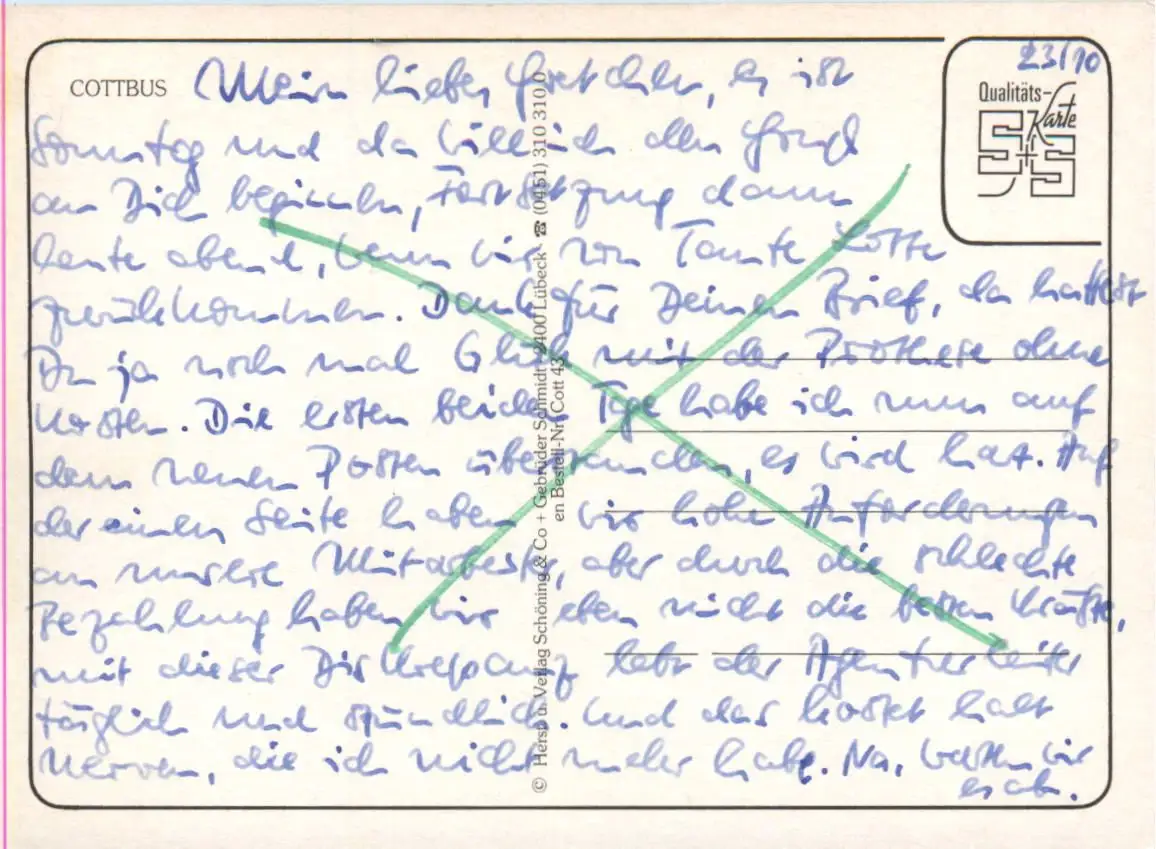 23/10
COTTBUS
Qualitäts-Karte
S+S
Mein liebes Gretchen, es ist
Sonntag und da will ich den Gruß
an Dich beginnen, Fortsetzung dann
heute abend, wenn wir von Tante Lotte
zurückkommen. Dank für Deinen Brief, da hattest
Du ja noch mal Glück mit der Prothese ohne
Kosten. Die ersten beiden Tage habe ich nun auf
dem neuen Posten überstanden, es wird hart. Auf
der einen Seite haben wir hohe Anforderungen
an unsere Mitarbeiter, aber durch die schlechte
Bezahlung haben wir eben nicht die besten Kräfte,
mit dieser Diskrepanz lebt der Agenturleiter
täglich und stündlich. Und das kostet halt
Nerven, die ich nicht mehr habe. Na, warten wir
es ab.
© Herst. u. Verlag Schöning & Co + Gebrüder Schmidt 2400 Lübeck ☎ (0451) 310 310
en Bestell-Nr. Cott 43